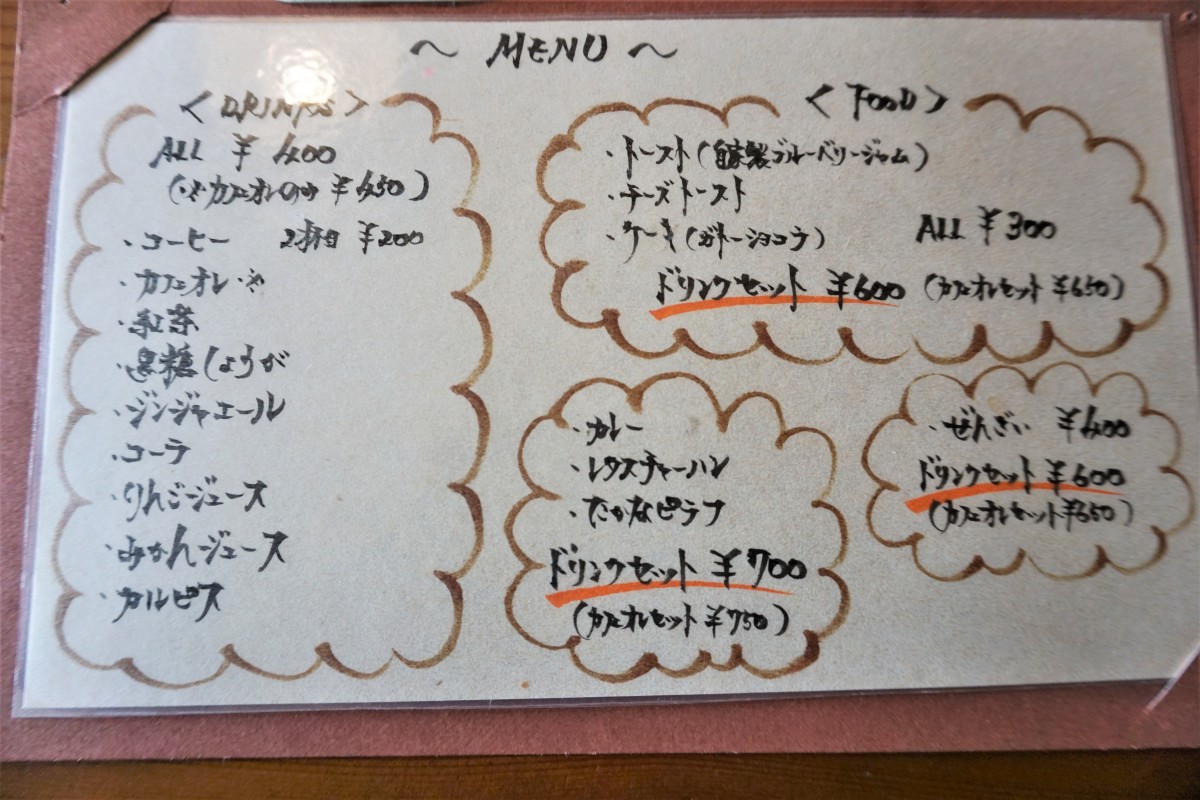 ～ MENU ～
＜DRINKS＞
ALL ¥400
(※カフェオレのみ ¥450)
・コーヒー 2杯目 ¥200
・カフェオレ※
・紅茶
・黒糖しょうが
・ジンジャエール
・コーラ
・りんごジュース
・みかんジュース
・カルピス
＜FOOD＞
・トースト(自家製ブルーベリージャム)
・チーズトースト
・ケーキ(ガトーショコラ) ALL ¥300
ドリンクセット ¥600 (カフェオレセット ¥650)
・カレー
・レタスチャーハン
・たかなピラフ
ドリンクセット ¥700
(カフェオレセット ¥750)
・ぜんざい ¥400
ドリンクセット ¥600
(カフェオレセット ¥650)